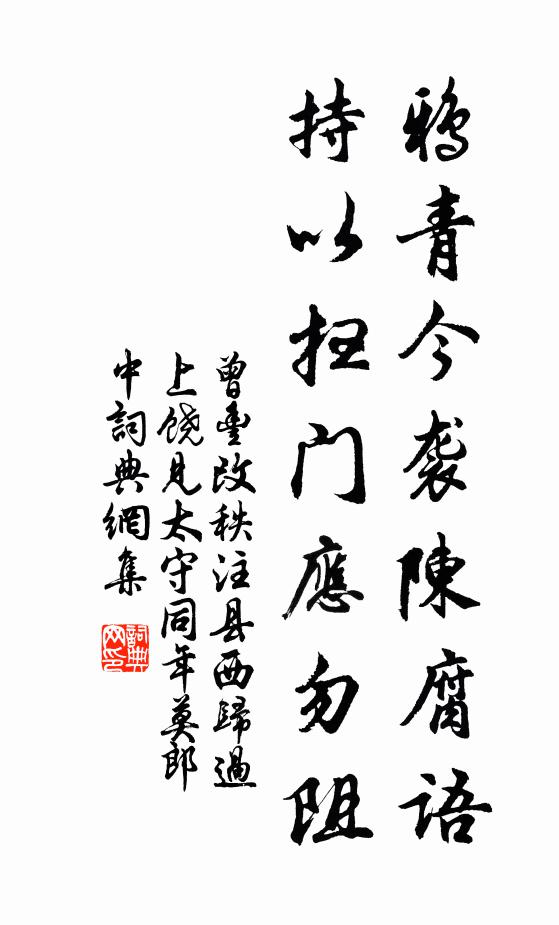 鴉青今袭陳腐语
持以扭门應勿阻
曾豊改秩注县西歸過
上饶见太守同年莫郎
中詞典網集
詞典
网印